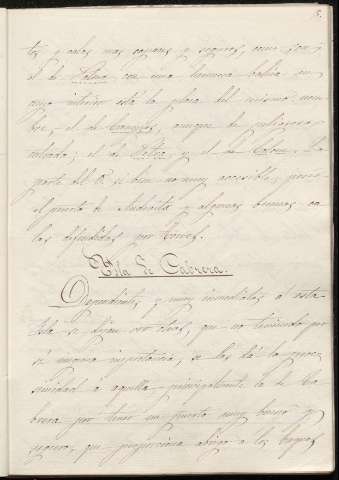 5.
tos y calas mas capaces y seguros, como son
el de Palma con una hermosa bahia en
cuyo interior está la plaza del mismo nom-
bre, el de Campos, aunque de peligrosa
entrada; el de Petra, y el de Colom. La
parte del O. si bien no muy accesible, posee
el puerto de Andraitx y algunas buenas ca
las defendidas por torres.
Isla de Cabrera.
Dependientes y muy inmediatas á esta
Isla se dejan ver otras, que no teniendo por
sí ninguna importancia, se les dá la
á aquella principalmente la de Ca
brera por tener un puerto muy bueno y
seguro, que proporciona abrigo a los buques